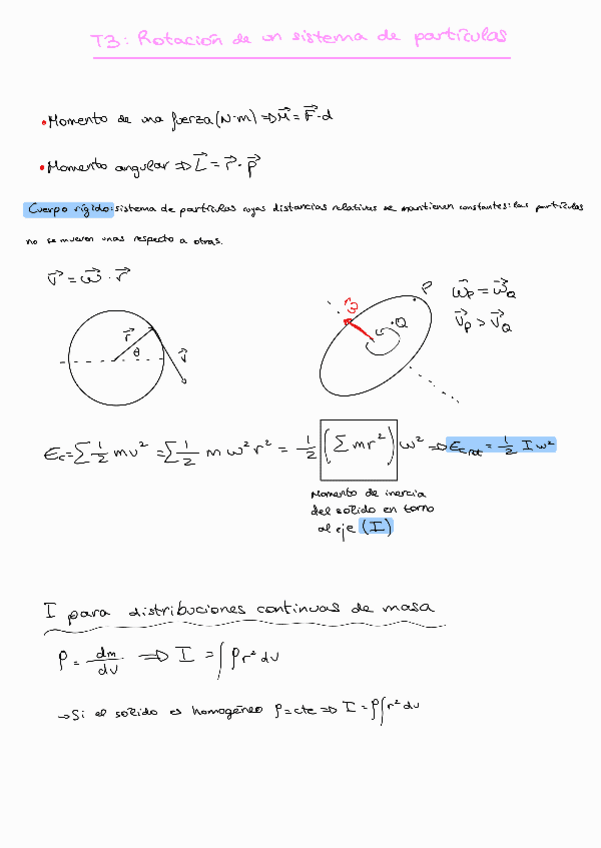 T3: Rotación de un sistema de partículas
• Momento de una fuerza (N·m) ⇒ M⃗ = F⃗·d
• Momento angular ⇒ L⃗ = r⃗·p⃗
Cuerpo rígido: sistema de partículas cuyas distancias relativas se mantienen constantes: las partículas
no se mueven unas respecto a otras.
v⃗ = ω⃗ · r⃗
r⃗
θ
v⃗
ω⃗
P
·Q
ω⃗P = ω⃗Q
v⃗P > v⃗Q
Ec = Σ 1/2 mv² = Σ 1/2 m ω² r² = 1/2 (Σ mr²) ω² ⇒ Ec rot = 1/2 I ω²
Momento de inercia
del solido en torno
al eje (I)
I para distribuciones continuas de masa
ρ = dm/dv ⇒ I = ∫ ρ r² dv
→ Si el solido es homogéneo ρ = cte ⇒ I = ρ ∫ r² dv